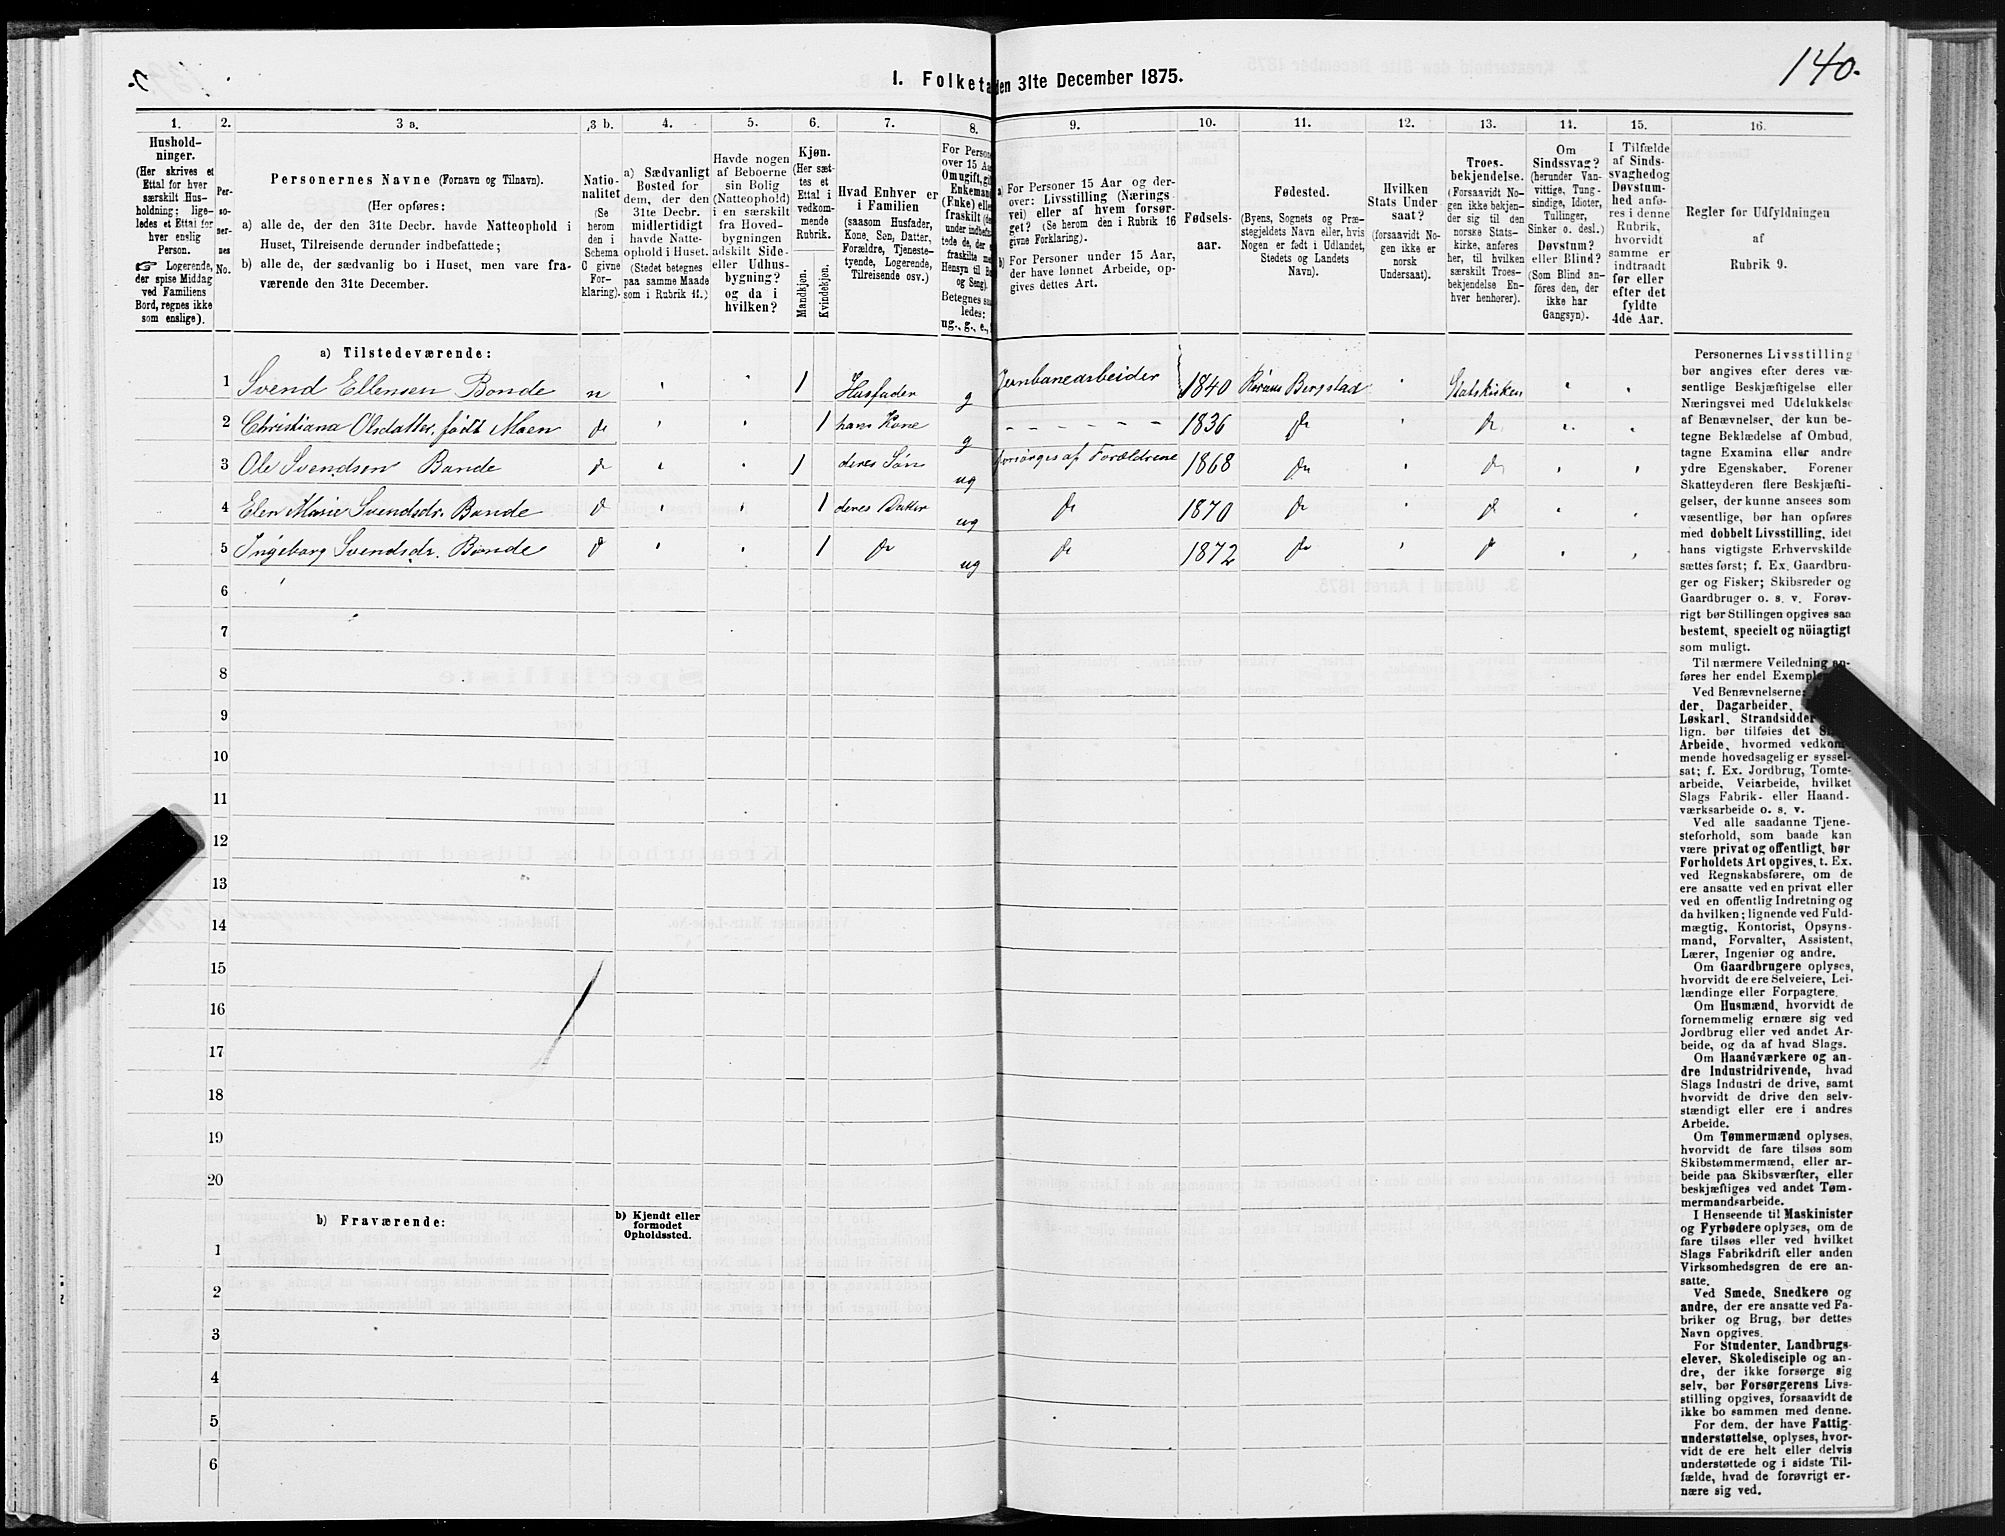 140.
1. Folketa den 31te December 1875.
1. 2. 3 a. 3 b. 4. 5. 6. 7. 8. 9. 10. 11. 12. 13. 14. 15. 16.
Hushold-
ninger.
(Her skrives et
Ettal for hver
særskilt Hus-
holdning; lige-
ledes et Ettal for
hver enslig
Person.
☞ Logerende,
der spise Middag
ved Familiens
Bord, regnes ikke
som enslige).
Per-
so-
ner-
nes
No.
Personernes Navne (Fornavn og Tilnavn).
(Her opføres:
a) alle de, der den 31te Decbr. havde Natteophold i
Huset, Tilreisende derunder indbefattede;
b) alle de, der sædvanlig bo i Huset, men vare fra-
værende den 31te December.
Natio-
nalitet
(Se
herom
den i
Schema
C givne
For-
klaring).
a) Sædvanligt
Bosted for
dem, der den
31te Decbr.
midlertidigt
havde Natte-
ophold i Huset.
(Stedet betegnes
paa samme Maade
som i Rubrik 11.)
Havde nogen
af Beboerne
sin Bolig
(Natteophold)
i en særskilt
fra Hoved-
bygningen
adskilt Side-
eller Udhus-
bygning?
og da i
hvilken?
Kjøn.
(Her sæt-
tes et
Ettal i
vedkom-
mende
Rubrik.
Mandkjøn.
Kvindekjøn.
Hvad Enhver er
i Familien
(saasom Husfader,
Kone, Søn, Datter,
Forældre, Tjeneste-
tyende, Logerende,
Tilreisende osv.)
For Person
over 15 Aa
Om ugift, gi
Enkemand
(Enke) elle
fraskilt (de
under indbefat
tede de, der e
fraskilte me
Hensyn til Bo
og Seng).
Betegnes saa
ledes:
ug., g., e.,
a) For Personer 15 Aar og der-
over: Livsstilling (Nærings
vei) eller af hvem forsør-
get? (Se herom den i Rubrik 16
givne Forklaring).
b) For Personer under 15 Aar,
der have lønnet Arbeide, op-
gives dettes Art.
Fødsels-
aar.
Fødested.
(Byens, Sognets og Præ-
stegjeldets Navn eller, hvis
Nogen er født i Udlandet,
Stedets og Landets
Navn).
Hvilken
Stats Under
saat?
(forsaavidt No-
gen ikke er
norsk
Undersaat).
Troes-
bekjendelse.
(Forsaavidt No-
gen ikke bekjen-
der sig til den
norske Stats-
kirke, anføres
her, til hvilken
særskilt Troes-
bekjendelse En-
hver henhører).
Om
Sindssvag?
(herunder Van-
vittige, Tung-
sindige, Idioter,
Tullinger,
Sinker o. desl.)
Døvstum?
eller Blind?
(Som Blind an-
føres den, der
ikke har
Gangsyn).
I Tilfælde
af Sinds-
svaghed og
Døvstum-
hed anfø-
res i denne
Rubrik,
hvorvidt
samme er
indtraadt
før eller
efter det
fyldte
4de Aar.
Regler for Udfyldningen
af
Rubrik 9.
a) Tilstedeværende:
1 Svend Ellensen Bonde n " " 1 Husfader g Jernbanearbeider 1840 Røraas Bergstad " Statskirken " "
2 Christiana Olsdatter, født Moen do " " 1 hans Kone g - - - - - - 1836 do " do " "
3 Ole Svendsen Bonde do " " 1 deres Søn ug forsørges af Forældrene 1868 do " do " "
4 Elen Marie Svendsdr. Bonde do " " 1 deres Datter ug do 1870 do " do " "
5 Ingeborg Svendsdr. Bonde do " " 1 do ug do 1872 do " do " "
6
7
8
9
10
11
12
13
14
15
16
17
18
19
20
b) Fraværende:
b) Kjendt eller
formodet
Opholdssted.
1
2
3
4
5
6
Personernes Livsstilling
bør angives efter deres væ-
sentlige Beskjæftigelse eller
Næringsvei med Udelukkelse
af Benævnelser, der kun be-
tegne Beklædelse af Ombud,
tagne Examina eller andre
ydre Egenskaber. Forener
Skatteyderen flere Beskjæfti-
gelser, der kunne ansees som
væsentlige, bør han opføres
med dobbelt Livsstilling, idet
hans vigtigste Erhvervskilde
sættes først; f. Ex. Gaardbru-
ger og Fisker; Skibsreder og
Gaardbruger o. s. v. Forøv-
rigt bør Stillingen opgives saa
bestemt, specielt og nöiagtigt
som muligt.
Til nærmere Veiledning an-
føres her endel Exemple
Ved Benævnelserne:
der, Dagarbeider,
Løskarl, Strandsidder
lign. bør tilføies det S
Arbeide, hvormed vedkom-
mende hovedsagelig er syssel-
sat; f. Ex. Jordbrug, Tomte-
arbeide, Veiarbeide, hvilket
Slags Fabrik- eller Haand-
værksarbeide o. s. v.
Ved alle saadanne Tjene-
steforhold, som baade kan
være privat og offentligt, bør
Forholdets Art opgives, t. Ex.
ved Regnskabsførere, om de
ere ansatte ved en privat eller
ved en offentlig Indretning og
da hvilken; lignende ved Fuld-
mægtig, Kontorist, Opsyns-
mand, Forvalter, Assistent,
Lærer, Ingeniør og andre.
Om Gaardbrugere oplyses,
hvorvidt de ere Selveiere, Lei-
lændinge eller Forpagtere.
Om Husmænd, hvorvidt de
fornemmelig ernære sig ved
Jordbrug eller ved andet Ar-
beide, og da af hvad Slags.
Om Haandværkere og an-
dre Industridrivende, hvad
Slags Industri de drive, samt
hvorvidt de drive den selv-
stændigt eller ere i andres
Arbeide.
Om Tømmermænd oplyses,
hvorvidt de fare tilsøs som
Skibstømmermænd, eller ar-
beide paa Skibsværfter, eller
beskjæftiges ved andet Tøm-
mermandsarbeide.
I Henseende til Maskinister
og Fyrbødere oplyses, om de
fare tilsøs eller ved hvilket
Slags Fabrikdrift eller anden
Virksomhedsgren de ere an-
satte.
Ved Smede, Snedkere og
andre, der ere ansatte ved Fa-
briker og Brug, bør dettes
Navn opgives.
For Studenter, Landbrugs-
elever, Skoledisciple og an-
dre, der ikke forsørge sig
selv, bør Forsørgerens Livs-
stilling opgives, forsaavidt de
ikke bo sammen med denne.
For dem, der have Fattig-
understøttelse, oplyses, hvor-
vidt de ere helt eller delvis
understøttede og i sidste Til-
fælde, hvad de forøvrigt er-
nære sig ved.